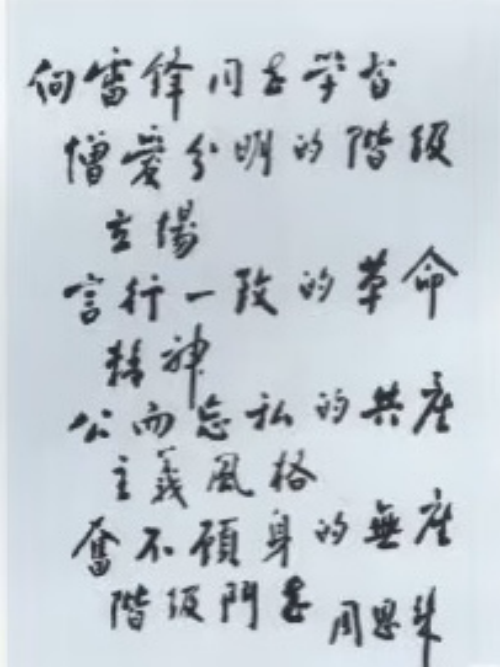 向雷锋同志学習
憎愛分明的階级
立場
言行一致的革命
精神
公而忘私的共产
主義風格
奮不顾身的無产
階级鬥志 周恩来